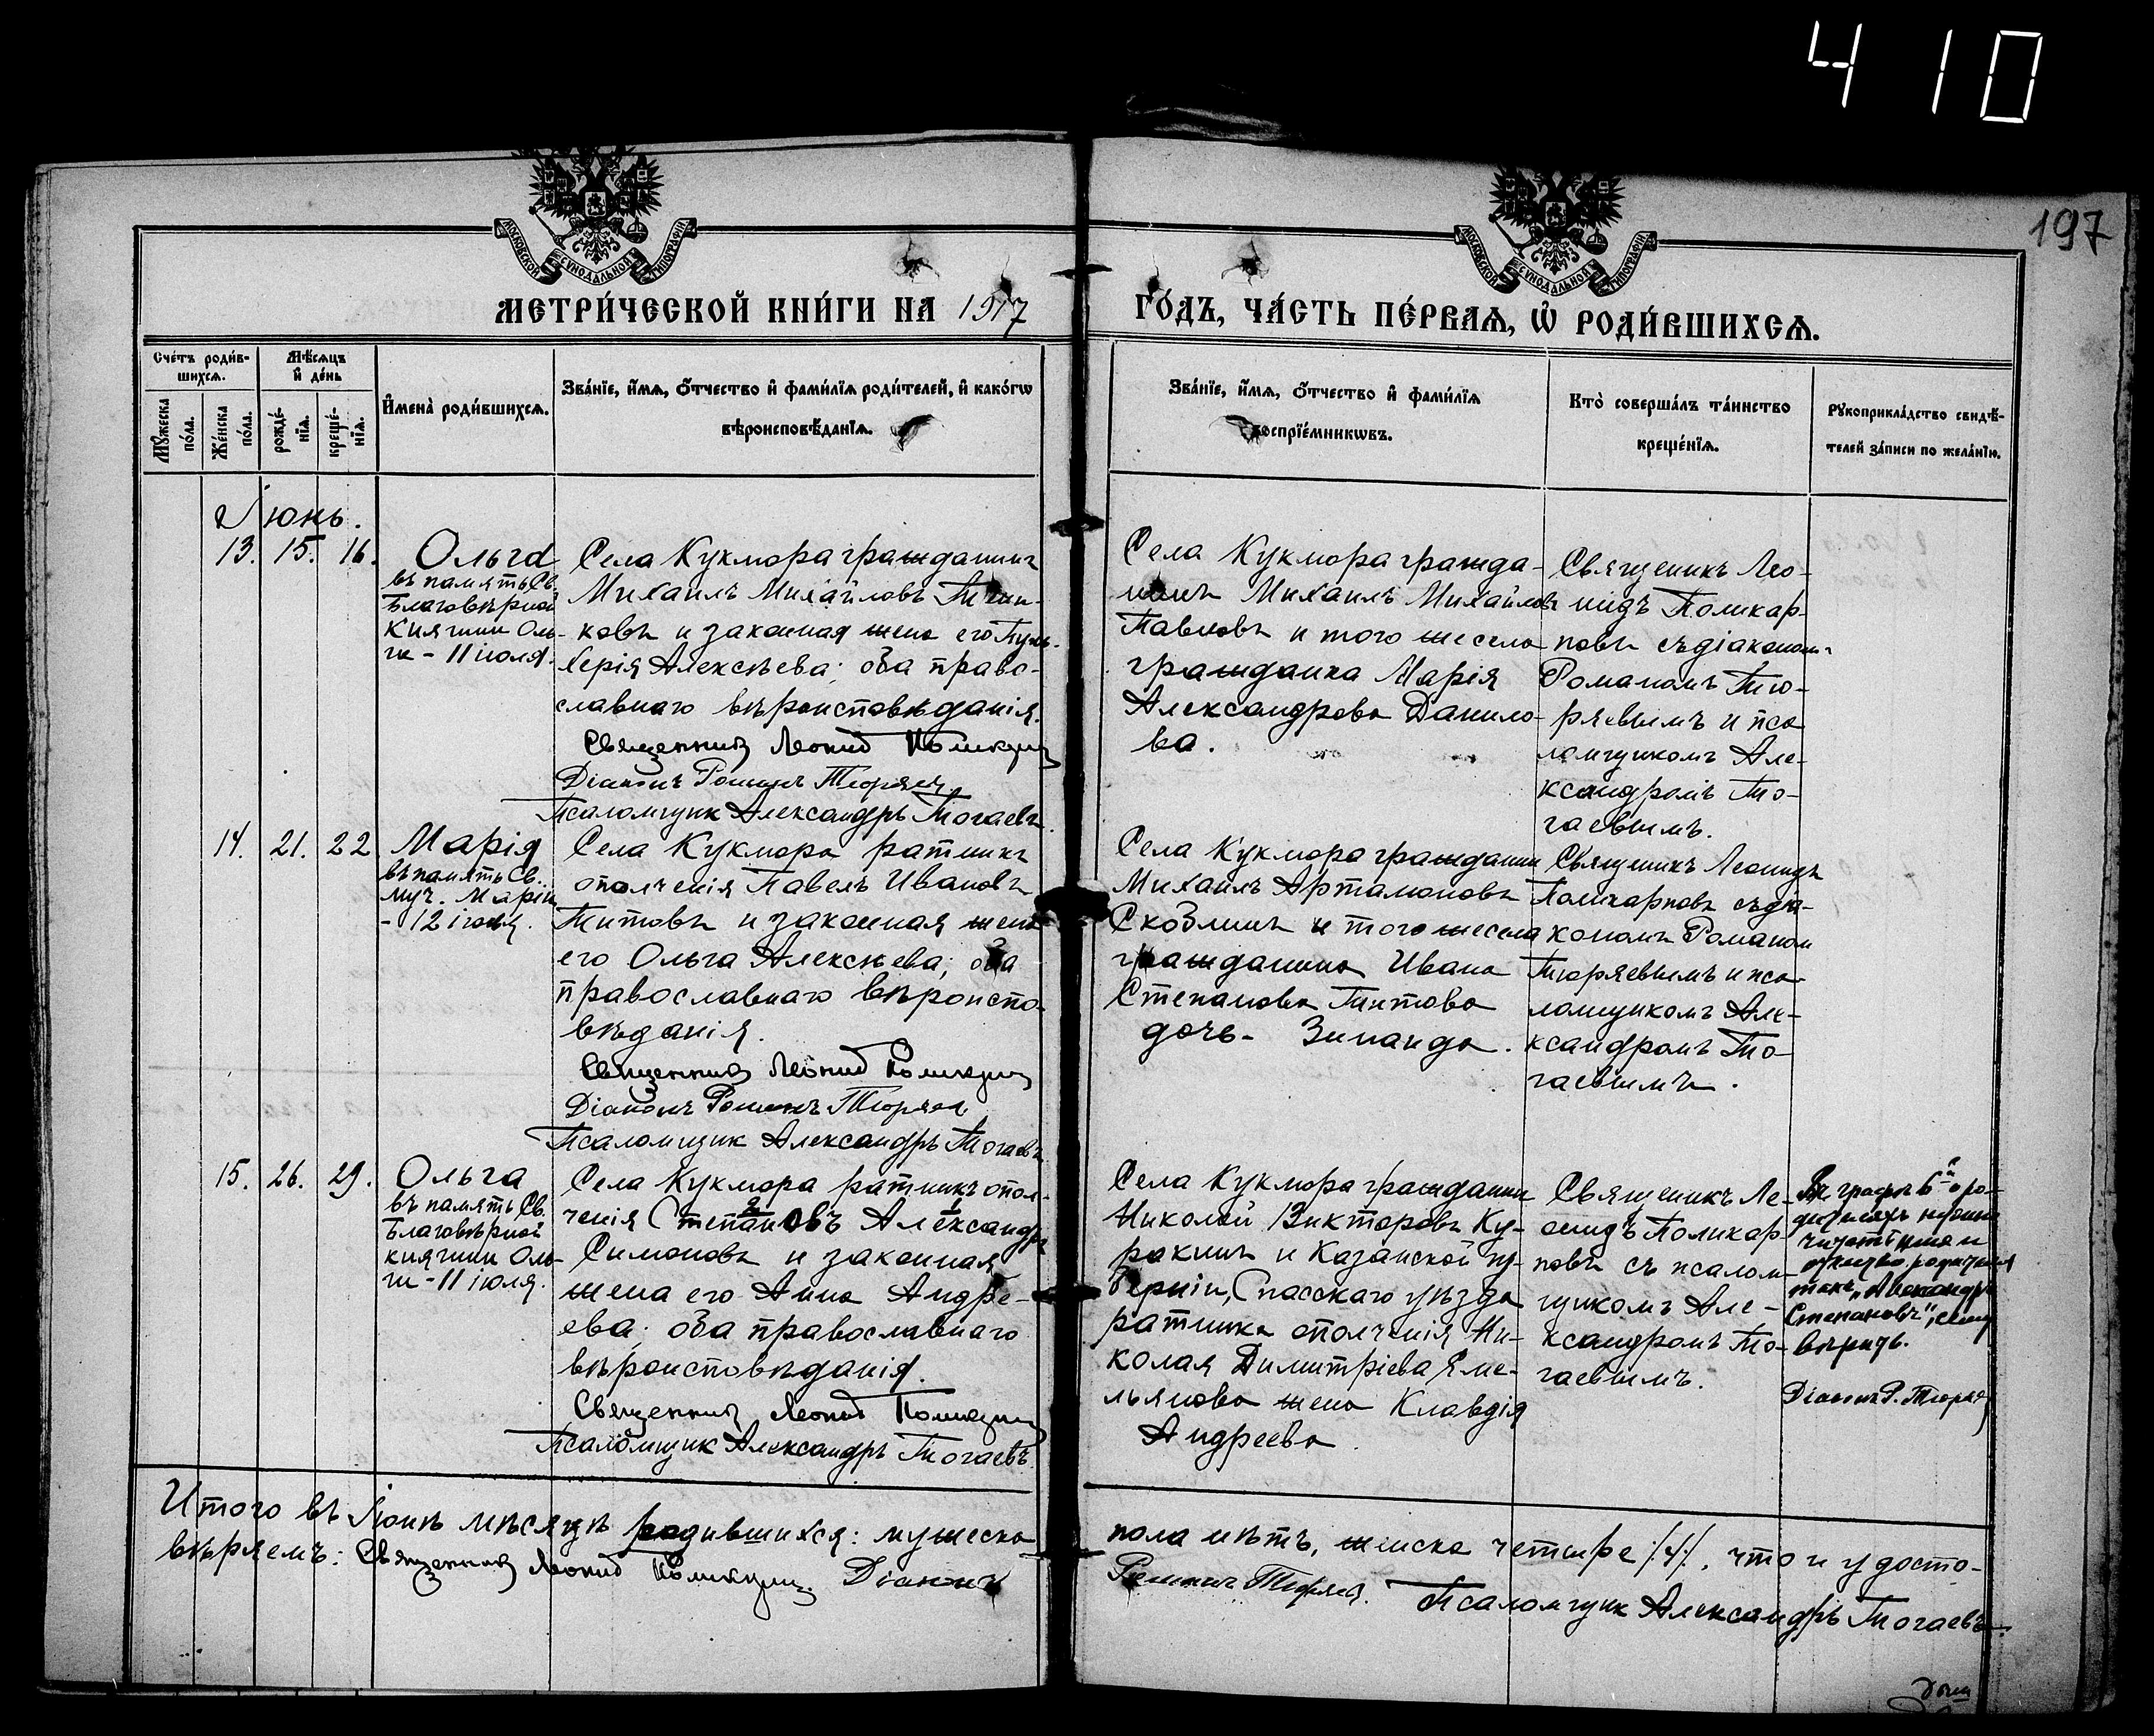 410
197
МОСКОВСКОЙ СѴНОДАЛЬНОЙ ТИПОГРАФІИ
МОСКОВСКОЙ СѴНОДАЛЬНОЙ ТИПОГРАФІИ
МЕТРИ́ЧЕСКОЙ КНИ́ГИ НА 1917
ГО́ДЪ, ЧА́СТЬ ПЕ́РВАѦ, Ѡ҆ РОДИ́ВШИХСѦ.
Сче́тъ роди́в-
шихсѧ.
Мѣ́сѧцъ
и҆ де́нь
Мꙋ́жеска
по́ла.
Же́нска
по́ла.
рожде́-
нїѧ.
креще́-
нїѧ.
И҆мена̀ роди́вшихсѧ.
Зва́нїе, и҆́мѧ, ѻ҆́тчество и҆ фами́лїѧ роди́телей, и҆ како́гѡ
вѣроисповѣ́данїѧ.
Зва́нїе, и҆́мѧ, ѻ҆́тчество и҆ фами́лїѧ
воспрїе́мникѡвъ.
Кто̀ соверша́лъ та́инство
креще́нїѧ.
Рꙋкоприкла́дство свидѣ́-
телей за́писи по жела́нїю.
Іюнь.
13. 15. 16.
Ольга
въ память Св.
Благовѣрной
Княгини Оль-
ги - 11 іюля.
Села Кукмора гражданинъ
Михаилъ Михайловъ
ковъ и законная жена его Пуль-
херія Алексѣева; оба право-
славнаго вѣроисповѣданія.
Священникъ Леонид Поликарповъ
Діаконъ Романъ Тюряевъ
Псаломщик Александръ Тогаевъ.
Села Кукмора гражда-
нинъ Михаилъ Михайловъ
Павловъ и того же села
гражданка Марія
Александрова Данило-
ва.
Священикъ Лео-
нидъ Поликар-
повъ съ діакономъ
Романомъ Тю-
ряевымъ и пса
ломщикомъ Але-
ксандромъ То-
гаевымъ.
14. 21. 22
Марія
въ память Св.
муч. Маріи
- 12 іюля.
Села Кукмора ратникъ
ополченія Павелъ Ивановъ
Титовъ и законная жена
его Ольга Алексѣева; оба
православнаго вѣроиспо-
вѣданія.
Священникъ Леонид Поликарповъ
Діаконъ Романъ Тюряевъ
Псаломщик Александръ Тогаевъ.
Села Кукмора гражданин
Михаилъ Артамоновъ
Скоблинъ и того же села
гражданина Ивана
Степанова Титова
дочь - Зинаида.
Священикъ Леонидъ
Поликарповъ съ діа-
кономъ Романом
Тюряевымъ и пса-
ломщикомъ Але-
ксандромъ То-
гаевымъ.
15. 26. 29.
Ольга
въ память Св.
Благовѣрной
княгини Оль-
ги - 11 іюля.
Села Кукмора ратникъ опол-
ченія Степановъ Александръ
Симоновъ и законная
жена его Анна Андре-
ева; оба православнаго
вѣроисповѣданія.
Священникъ Леонид Поликарповъ
Псаломщик Александръ Тогаевъ.
Села Кукмора гражданин
Николай Викторовъ Ку-
ракинъ и Казанской гу-
берніи, Спасскаго уѣзда
ратника ополченія Ни-
колая Димитріева Яме-
льянова жена Клавдія
Андреева.
Священикъ Ле-
онидъ Поликар-
повъ съ псалом-
щикомъ Але-
ксандромъ То-
гаевымъ.
графѣ 6й о ро-
дителяхъ нужно
читать имя и
отчество родителя
такъ „Александръ
Степановъ", сему
вѣрить.
Діаконъ Р. Тюряевъ
Итого въ Іюнѣ мѣсяцѣ родившихся: мужеска
пола нѣтъ, женска четыре /4/, что и удосто-
вѣряемъ: Священникъ Леонид Поликарповъ. Діаконъ
Романъ Тюряевъ. Псаломщик Александръ Тогаевъ.